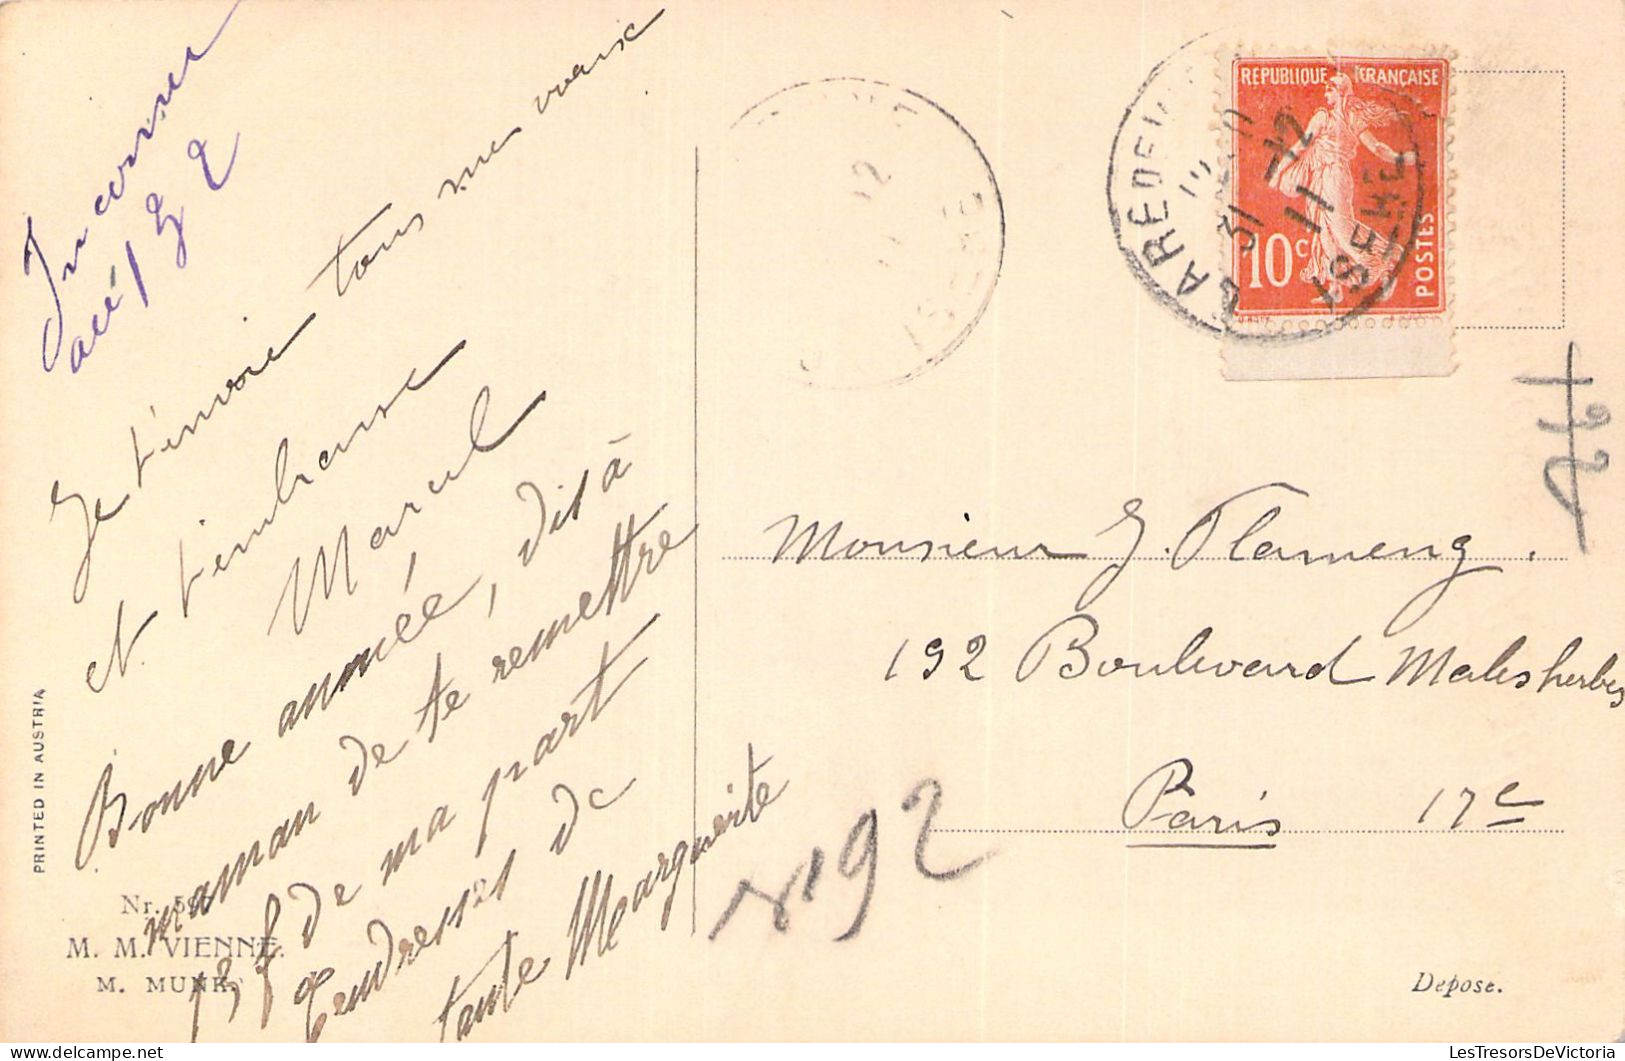 Inconnu
au 182
Je t'envoie tous mes vœux
et t'embrasse
Marcel
Bonne année, dis à
maman de te remettre
15f de ma part
Tendresses de
tante Marguerite
PRINTED IN AUSTRIA
Nr.
M. M. VIENNE.
M. MUNK
RÉPUBLIQUE FRANÇAISE
10c
POSTES
31 -12
11
ISÈRE
ISÈRE
12
261
Monsieur J. Flameng.
192 Boulevard Malesherbes
Paris 17e
192
Deposé.
LesTresorsDeVictoria.com